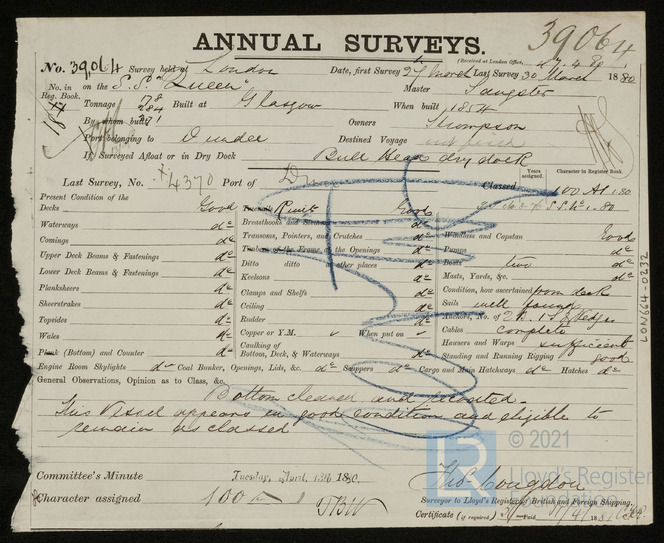 39064
ANNUAL SURVEYS.
(Received at London Office,
No. 39064 Survey held at London Date, first Survey 27 March Last Survey 30 March 1880
No. in Reg. Book. on the S.S. "Queen" Master Sangster
Tonnage 284 Built at Glasgow When built 1854
By whom built Owners Thompson
Port belonging to Dundee Destined Voyage
If Surveyed Afloat or in Dry Dock Bull Head dry dock
Years assigned. Character in Register Book.
Last Survey, No. 4370 Port of Classed 100 A1.80
Present Condition of the
Decks Good
Waterways do
Comings do
Upper Deck Beams & Fastenings do
Lower Deck Beams & Fastenings do
Planksheers do
Sheerstrakes do
Topsides do
Wales do
Plank (Bottom) and Counter do
Good
Breasthooks and do
Transoms, Pointers, and Crutches do
Timbers of the Frame at the Openings do
Ditto ditto at other places do
Keelsons do
Clamps and Shelfs do
Ceiling do
Rudder do
Copper or Y.M. When put on
Caulking of Bottom, Deck, & Waterways do
Windlass and Capstan Good
Pumps do
Boats two do
Masts, Yards, &c. do
Condition, how ascertained from deck
Sails well found
Anchors, No. of
Cables complete
Hawsers and Warps sufficient
Standing and Running Rigging good
Engine Room Skylights do Coal Bunker, Openings, Lids, &c. do Scuppers do Cargo and Main Hatchways do Hatches do
General Observations, Opinion as to Class, &c.
Bottom cleaned and recoated.
This Vessel appears in good condition and eligible to
remain as classed
© 2021
Lloyd's Register Foundation
Committee's Minute Tuesday, April 13th 1880.
Character assigned 100
Surveyor to Lloyd's Register of British and Foreign Shipping.
Certificate (if required)
LON664-0232